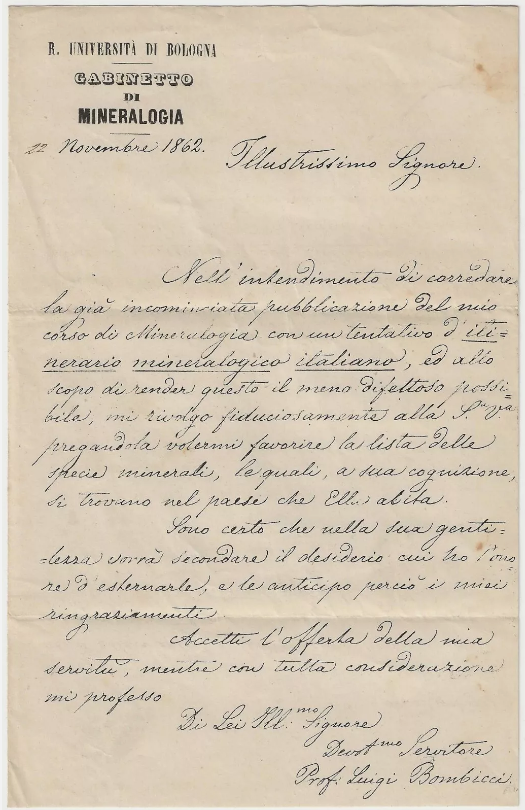 R. UNIVERSITÀ DI BOLOGNA
GABINETTO
DI
MINERALOGIA
22 Novembre 1862.
Illustrissimo Signore.
Nell' intendimento di corredare
la già incominciata pubblicazione del mio
corso di Mineralogia con un tentativo d' iti=
nerario mineralogico italiano, ed allo
scopo di render questo il meno difettoso possi=
bile, mi rivolgo fiduciosamente alla S.ria Va
pregandola volermi favorire la lista delle
specie minerali, le quali, a sua cognizione,
si trovano nel paese che Ella abita.
Sono certo che nella sua genti=
=lezza vorrà secondare il desiderio cui ho l'ono=
re d'esternarle, e le anticipo perciò i miei
ringraziamenti.
Accetti l'offerta della mia
servitù, mentre con tutta considerazione
mi professo
Di Lei Ill:mo Signore
Devotmo Servitore
Prof: Luigi Bombicci